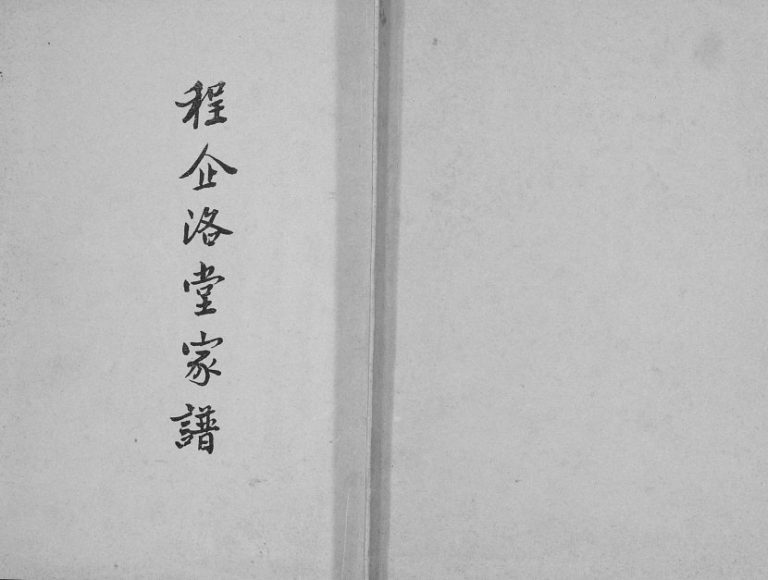 程企洛堂家譜